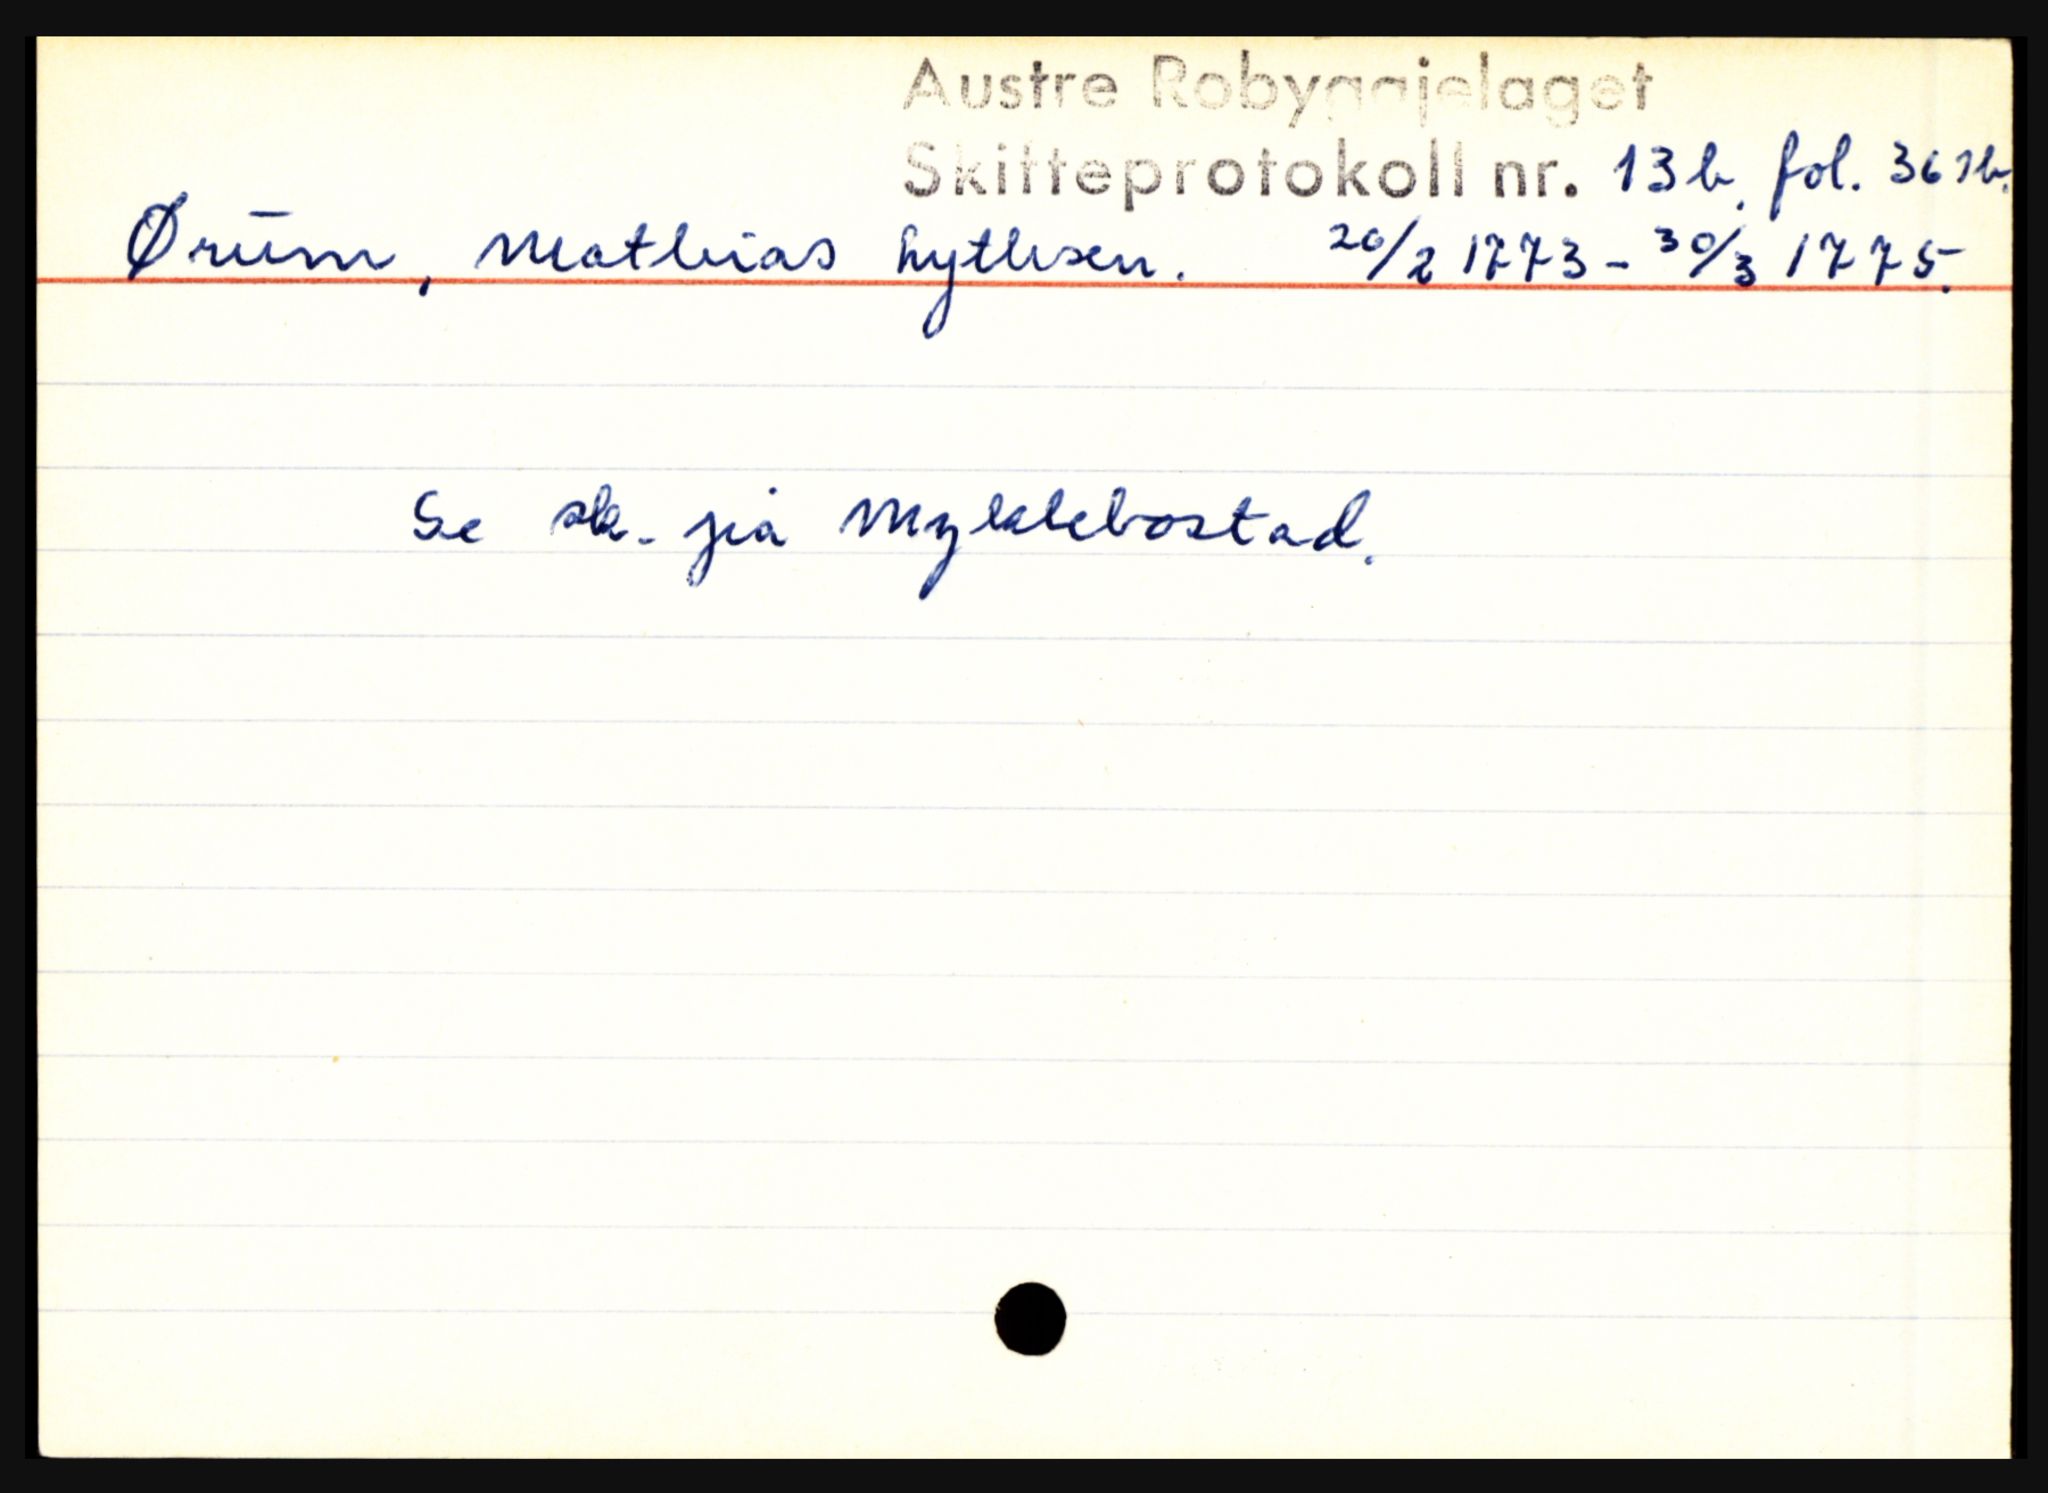 Austre Robyggjelaget
Skifteprotokoll nr. 13b, fol. 367b.
Ørum, Mathias Lytksen. 20/2 1773 - 30/3 1775.
Se sk. på Myklebostad.